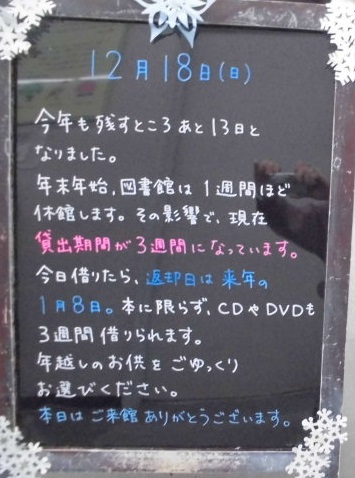 12月18日(日)
今年も残すところあと13日と
なりました。
年末年始,図書館は1週間ほど
休館します。その影響で、現在
貸出期間が3週間になっています。
今日借りたら、返却日は来年の
1月8日。本に限らず、CDやDVDも
3週間借りられます。
年越しのお供をごゆっくり
お選びください。
本日はご来館ありがとうございます。